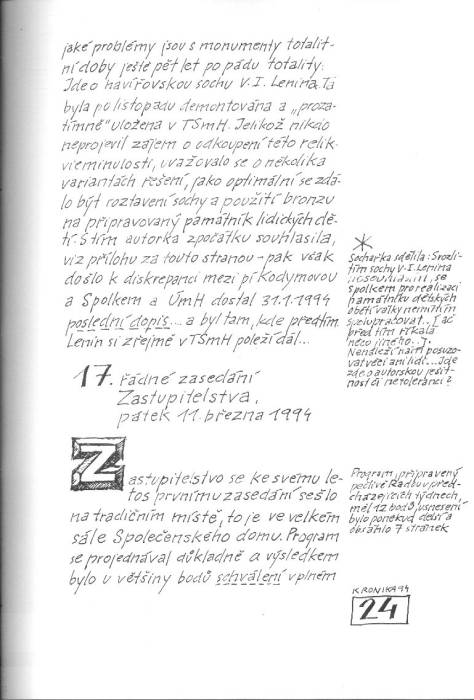 jaké problémy jsou s monumenty totalit-
ní doby ještě pět let po pádu totality.
Jde o havířovskou sochu V. I. Lenina. Ta
byla po listopadu demontována a „proza-
tímně" uložena v TSmH. Jelikož nikdo
neprojevil zájem o odkoupení této relik-
vie minulosti, uvažovalo se o několika
variantách řešení, jako optimální se zdá-
lo být roztavení sochy a použití bronzu
na připravovaný památník lidických dě-
tí. S tím autorka zpočátku souhlasila,
viz přílohu za touto stranou - pak však
došlo k diskrepanci mezi pí Kodymovou
a Spolkem a ÚmH dostal 31.1.1994
poslední dopis... a byl tam, kde předtím
Lenin si zřejmě v TSmH poleží dál...
17. řádné zasedání
Zastupitelstva,
pátek 11. března 1994
Zastupitelstvo se ke svému le-
tos prvnímu zasedání sešlo
na tradičním místě, to je ve velkém
sále Společenského domu. Program
se projednával důkladně a výsledkem
bylo u většiny bodů schválení v plném
*
Sochařka sdělila: S rozli-
tím sochy V. I. Lenina
nesouhlasím, se
Spolkem pro realizaci
památníku dětských
obětí války nemíním
spolupracovat... (ač
předtím říkala
něco jiného...).
Nenáleží nám posuzo-
vat věci ani lidi... Jde
zde o autorskou ješit-
nost či netoleranci?
Program, připravený
pečlivě Radou v před-
cházejících týdnech,
měl 12 bodů, usnesení
bylo poněkud delší a
obsáhlo 7 stránek
KRONIKA 94
24